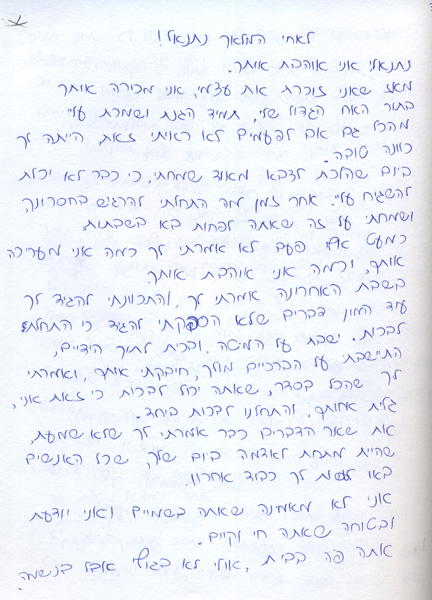 לאחי המלאך נתנאל!
נתנאל! אני אוהבת אותך.
מאז שאני זוכרת את עצמי, אני מכירה אותך
בתור האח הגדול שלי, תמיד הגנת ושמרת עלי
מהכל גם אם לפעמים לא ראיתי זאת, הייתה לך
כוונה טובה.
ביום שהלכת לצבא מאוד שמחתי, כי כבר לא יכולת
להשגיח עלי. אחר זמן מה התחלתי להרגיש בחסרונך,
ושמחתי על זה שאתה לפחות בא בשבתות
כמעט אף פעם לא אמרתי לך כמה אני מעריכה
אותך, וכמה אני אוהבת אותך.
בשבת האחרונה אמרתי לך, והתכוונתי להגיד לך
עוד המון דברים שלא הספקתי להגיד כי התחלת
לבכות. ישבת על המיטה, ובכית לתוך הידיים,
התיישבתי על הברכיים מולך, חיבקתי אותך, ואמרתי
לך שהכל בסדר, שאתה יכול לבכות כי זאת אני,
גלית אחותך, והתחלנו לבכות ביחד.
את שאר הדברים כבר אמרתי לך שלא שמעת,
שהיית מתחת לאדמה ביום שלך, שכל האנשים
באו לתת לך כבוד אחרון.
אני לא מאמינה שאתה בשמיים ואני יודעת
ובטוחה שאתה חי וקיים.
אתה פה בבית, אולי לא בגוף אבל בנשמה.